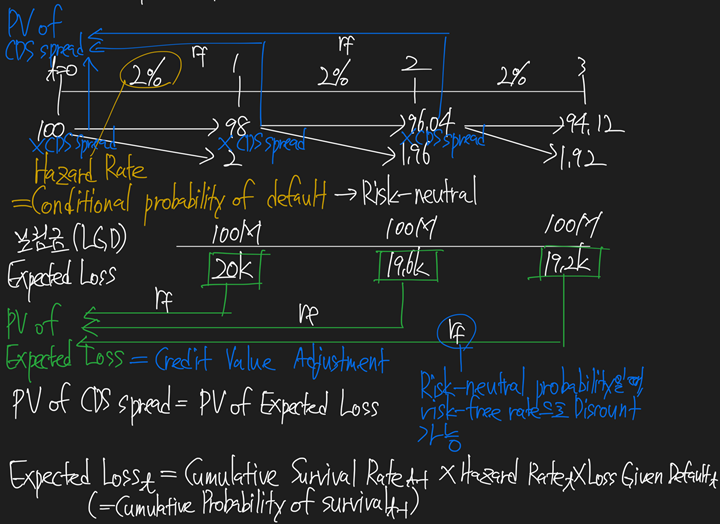 PV of
CDS spread
rf
rf
t=0
2%
1
2%
2
2%
3
100
98
96.04
94.12
X CDS spread
X CDS spread
X CDS spread
2
1.96
1.92
Hazard Rate
=Conditional probability of default → Risk-neutral
100M
100M
100M
보험금 (LGD)
Expected Loss
20k
19.6k
19.2k
rf
rf
rf
PV of
Expected Loss = Credit Value Adjustment
Risk-neutral probability을
risk-free rate으로 Discount
가능
PV of CDS spread = PV of Expected Loss
Expected Loss t = Cumulative Survival Rate t-1 X Hazard Rate t X Loss Given Default t
(=Cumulative Probability of survival t-1)